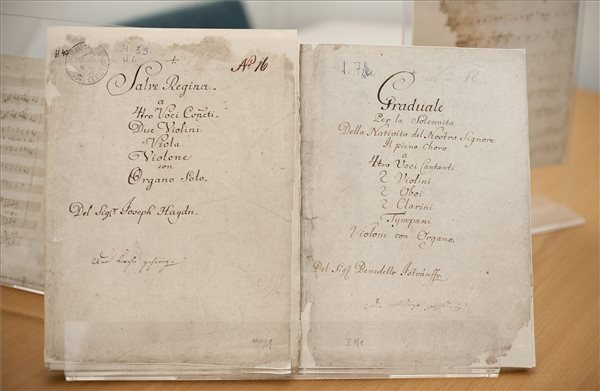 Nº 16
Salve Regina.
a
4tro Voci Conc̃ti
Due Violini
Viola.
Violone
con
Organo Solo.
Del Sigr. Joseph Haydn.
Graduale
Per la Solennita
Della Nativita del Nostro Signore
Il pieno Choro
a
4tro Voci Cantanti
2 Violini
2 Oboi
2 Clarini
Tympani
Violon con Organo.
Del Sigr. Benedetto Istvánffy.